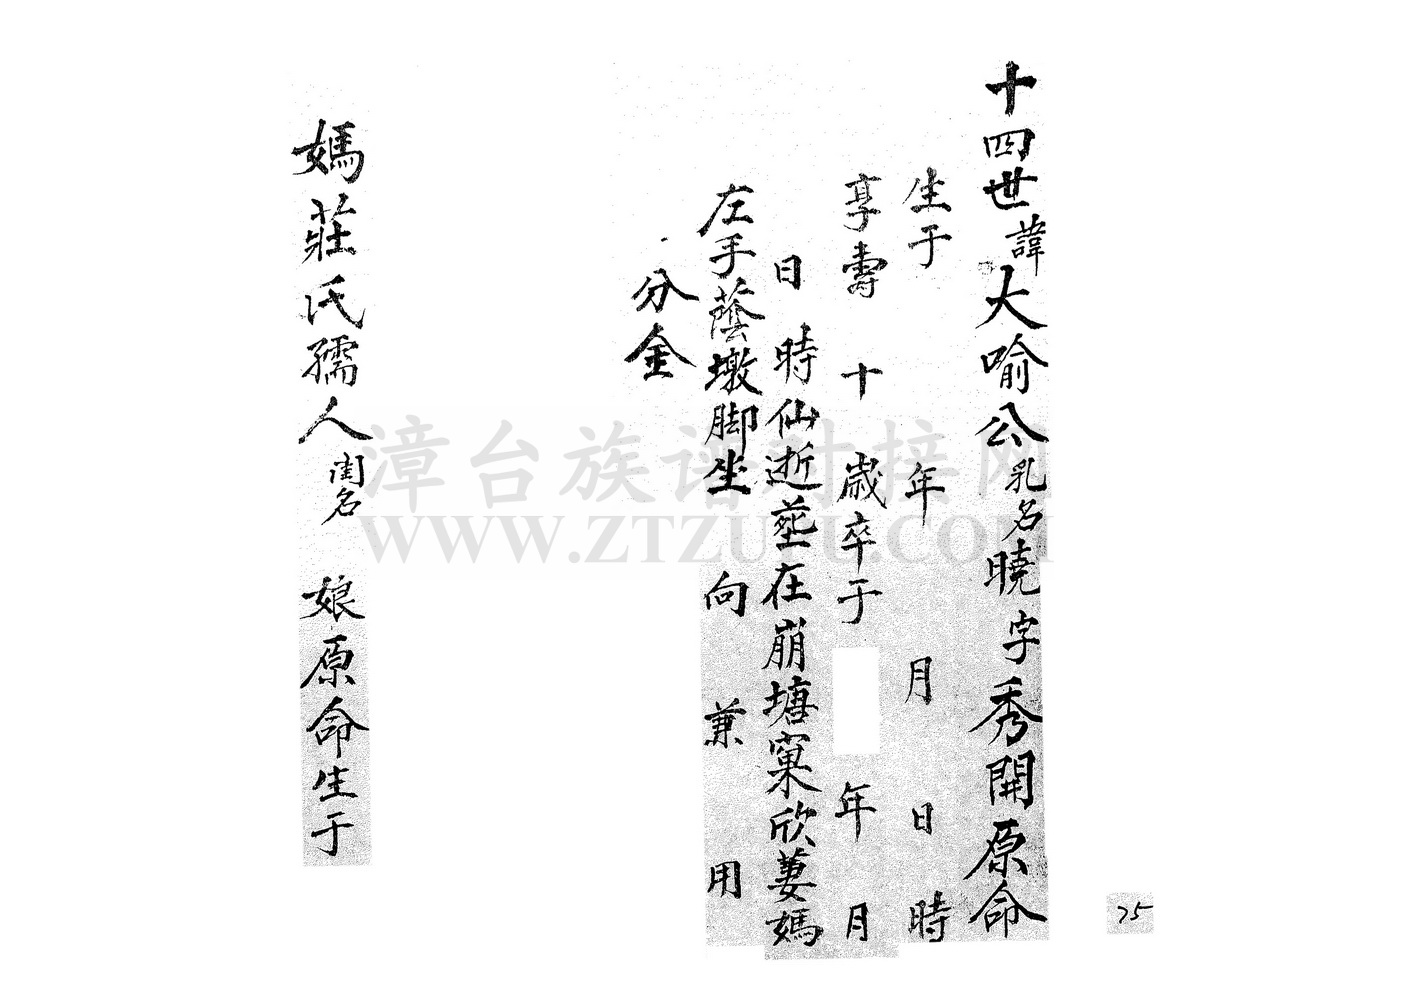 十四世諱大喻公乳名曉字秀開原命
生于 年 月 日 時
享壽 十 歲卒于 年 月
日 時仙逝塟在崩塘窠欣蔞媽
左手蔭墩脚坐 向 兼 用
分金
媽莊氏孺人閨名 娘原命生于
75
漳台族谱对接网
WWW.ZTZUPU.COM